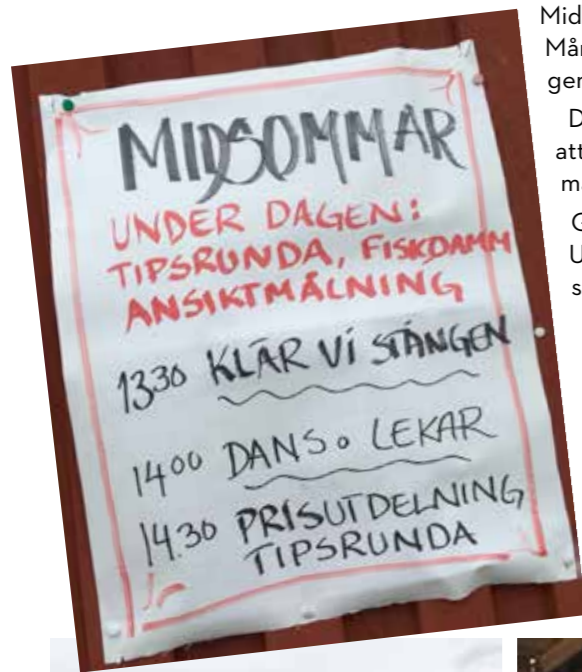 MIDSOMMAR
UNDER DAGEN:
TIPSRUNDA, FISKDAMM
ANSIKTMÅLNING
1330 KLÄR VI STÅNGEN
1400 DANS o LEKAR
14.30 PRISUTDELNING
TIPSRUNDA
Mid
Mån
gen
D
att
m
G
U
s